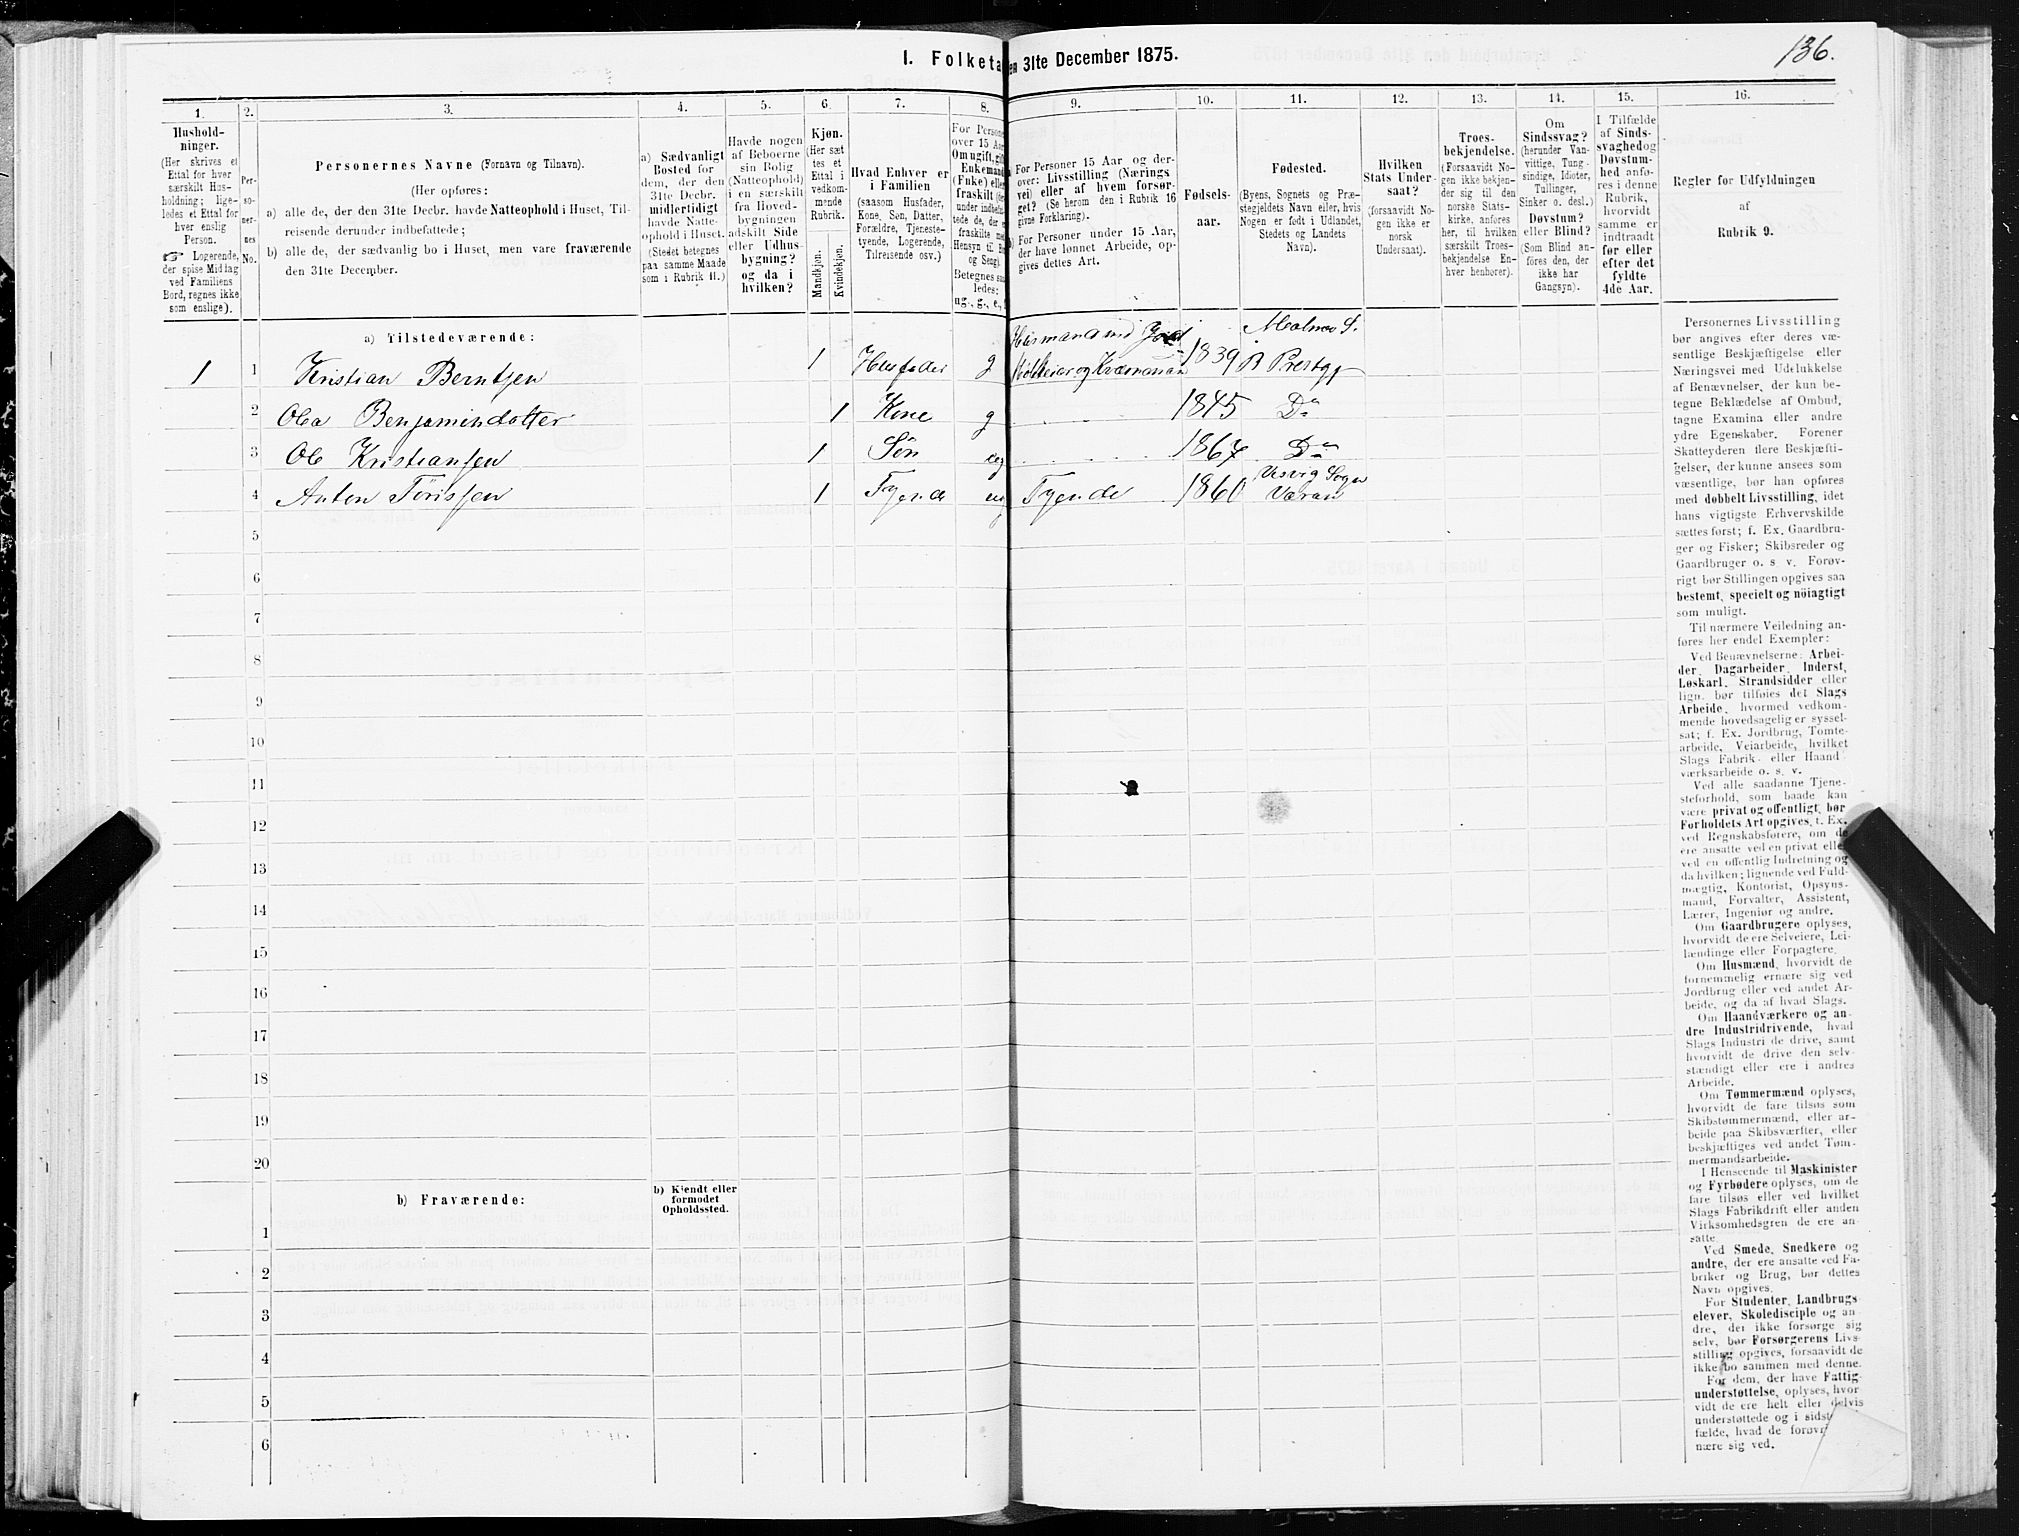 I. Folketa en 31te December 1875.
136.
1.
Hushold-
ninger.
(Her skrives et
Ettal for hver
særskilt Hus-
holdning; lige-
ledes et Ettal for
hver enslig
Person.
☞ Logerende,
der spise Middag
ved Familiens
Bord, regnes ikke
som enslige).
2.
Per-
so-
ner-
nes
No.
3.
Personernes Navne (Fornavn og Tilnavn).
(Her opføres:
a) alle de, der den 31te Decbr. havde Natteophold i Huset, Til-
reisende derunder indbefattede;
b) alle de, der sædvanlig bo i Huset, men vare fraværende
den 31te December.
4.
a) Sædvanligt
Bosted for
dem, der den
31te Decbr.
midlertidigt
havde Natte-
ophold i Huset.
(Stedet betegnes
paa samme Maade
som i Rubrik 11.)
5.
Havde nogen
af Beboerne
sin Bolig
(Natteophold)
i en særskilt
fra Hoved-
bygningen
adskilt Side
eller Udhus-
bygning?
og da i
hvilken?
6.
Kjøn.
(Her sæt
tes et
Ettal i
vedkom-
mende
Rubrik.
Mandkjøn.
Kvindekjøn.
7.
Hvad Enhver er
i Familien
(saasom Husfader,
Kone, Søn, Datter,
Forældre, Tjeneste-
tyende, Logerende,
Tilreisende osv.)
8.
For Persone
over 15 Aar
Om ugift, gif
Enkemand
(Fuke) eller
fraskilt (er
under indbefat-
tede de, der e
fraskilte med
Hensyn til Bo
og Seng).
Betegnes saa
ledes:
ug., g., e.,
9.
For Personer 15 Aar og der-
over: Livsstilling (Nærings
vei) eller af hvem forsør-
get? (Se herom den i Rubrik 16
givne Forklaring).
For Personer under 15 Aar,
der have lønnet Arbeide, op-
gives dettes Art.
10.
Fødsels-
aar.
11.
Fødested.
(Byens, Sognets og Præ-
stegjeldets Navn eller, hvis
Nogen er født i Udlandet,
Stedets og Landets
Navn).
12.
Hvilken
Stats Under-
saat?
(forsaavidt No-
gen ikke er
norsk
Undersaat).
13.
Troes-
bekjendelse.
(Forsaavidt No-
gen ikke bekjen-
der sig til den
norske Stats-
kirke, anføres
her, til hvilken
særskilt Troes-
bekjendelse En-
hver henhører).
14.
Om
Sindssvag?
(herunder Van-
vittige, Tung-
sindige, Idioter,
Tullinger,
Sinker o. desl.)
Døvstum?
eller Blind?
(Som Blind an-
føres den, der
ikke har
Gangsyn).
15.
I Tilfælde
af Sinds-
svaghed og
Døvstum-
hed anfø-
res i denne
Rubrik,
hvorvidt
samme er
indtraadt
før eller
efter det
fyldte
4de Aar.
16.
Regler for Udfyldningen
af
Rubrik 9.
a) Tilstedeværende:
1 1 Kristian Berntsen 1 Husfader g Husmand med Jord 1839 Prestgj
2 Benjaminsdatter 1 Kone g 1845 Do
3 Ole Kristiansen 1 Søn ug 1867 Do
4 Anton 1 Tyende ug Tyende 1860 Sogn
5
6
7
8
9
10
11
12
13
14
15
16
17
18
19
20
b) Fraværende:
b) Kjendt eller
formodet
Opholdssted.
1
2
3
4
5
6
Personernes Livsstilling
bør angives efter deres væ-
sentlige Beskjæftigelse eller
Næringsvei med Udelukkelse
af Benævnelser, der kun be-
tegne Beklædelse af Ombud,
tagne Examina eller andre
ydre Egenskaber. Forener
Skatteyderen flere Beskjæfti-
gelser, der kunne ansees som
væsentlige, bør han opføres
med dobbelt Livsstilling, idet
hans vigtigste Erhvervskilde
sættes først; f. Ex. Gaardbru-
ger og Fisker; Skibsreder og
Gaardbruger o. s. v. Forøv-
rigt bør Stillingen opgives saa
bestemt, specielt og nöiagtigt
som muligt.
Til nærmere Veiledning an-
føres her endel Exempler:
Ved Benævnelserne: Arbei-
der, Dagarbeider, Inderst,
Løskarl, Strandsidder eller
lign. bør tilføies det Slags
Arbeide, hvormed vedkom-
mende hovedsagelig er syssel-
sat; f. Ex. Jordbrug, Tomte-
arbeide, Veiarbeide, hvilket
Slags Fabrik- eller Haand-
værksarbeide o. s. v.
Ved alle saadanne Tjene-
steforhold, som baade kan
være privat og offentligt, bør
Forholdets Art opgives, t. Ex.
ved Regnskabsførere, om de
ere ansatte ved en privat elle
ved en offentlig Indretning og
da hvilken; lignende ved Fuld-
mægtig, Kontorist, Opsyns-
mand, Forvalter, Assistent,
Lærer, Ingeniør og andre.
Om Gaardbrugere oplyses,
hvorvidt de ere Selveiere, Lei-
lændinge eller Forpagtere.
Om Husmænd, hvorvidt de
fornemmelig ernære sig ved
Jordbrug eller ved andet Ar-
beide, og da af hvad Slags.
Om Haandværkere og an-
dre Industridrivende, hvad
Slags Industri de drive, samt
hvorvidt de drive den selv-
stændigt eller ere i andres
Arbeide.
Om Tømmermænd oplyses,
hvorvidt de fare tilsøs som
Skibstømmermænd, eller ar-
beide paa Skibsværfter, eller
beskjæftiges ved andet Tøm-
mermandsarbeide.
I Henseende til Maskinister
og Fyrbødere oplyses, om de
fare tilsøs eller ved hvilket
Slags Fabrikdrift eller anden
Virksomhedsgren de ere an-
satte.
Ved Smede, Snedkere og
andre, der ere ansatte ved Fa-
briker og Brug, bør dettes
Navn opgives.
For Studenter, Landbrugs
elever, Skoledisciple og an-
dre, der ikke forsørge sig
selv, bør Forsørgerens Livs-
stilling opgives, forsaavidt de
ikke bo sammen med denne.
For dem, der have Fattig-
understøttelse, oplyses, hvor
vidt de ere helt eller delvis
understøttede og i sidst
fælde, hvad de forøvr
nære sig ved.